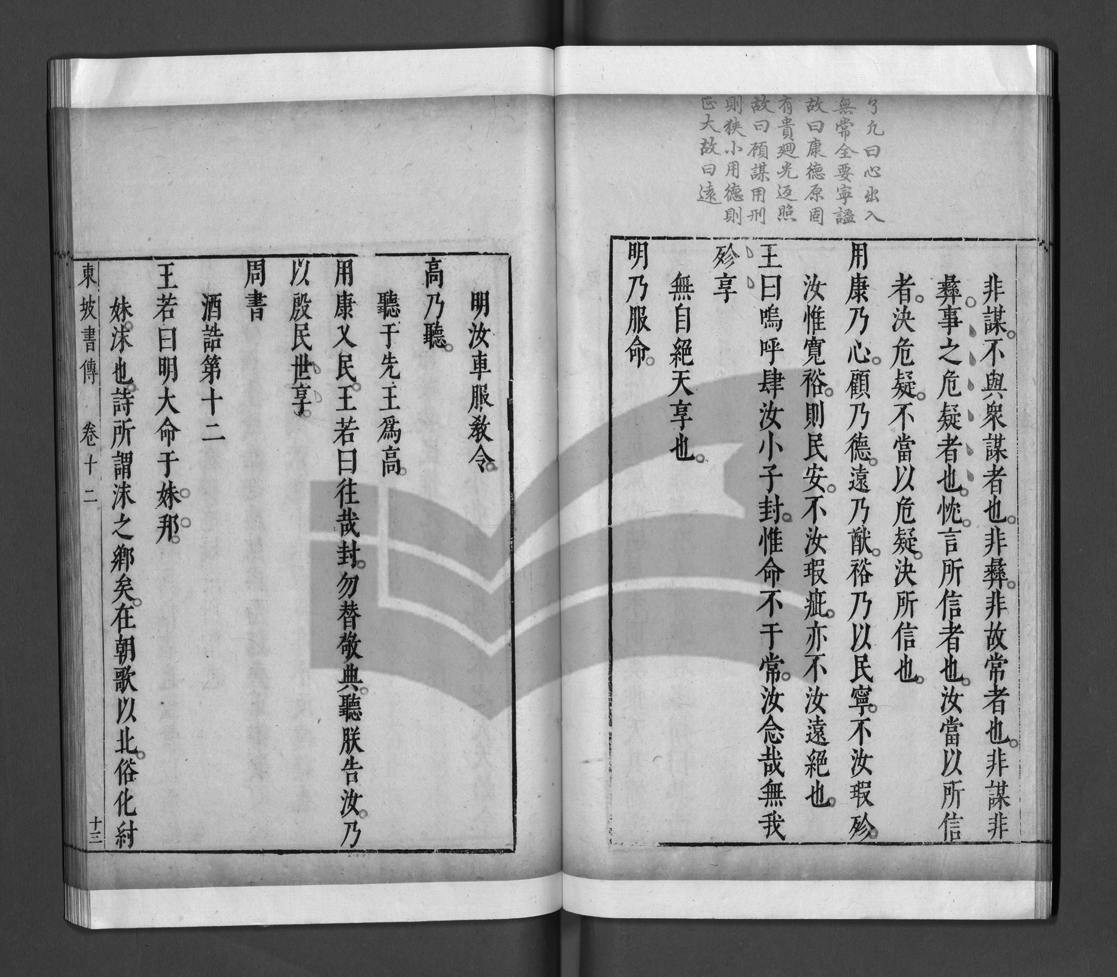 弓九曰心出入
無常全要寧謐
故曰康德原固
有貴廻光返照
故曰顧謀用刑
則狹小用德則
正大故曰遠
非謀。不與衆謀者也。非彝。非故常者也。非謀非
彝。事之危疑者也。忱言所信者也。汝當以所信
者。決危疑。不當以危疑。決所信也。
用康乃心。顧乃德。遠乃猷。裕乃以民寧。不汝瑕殄。
汝惟寬裕。則民安。不汝瑕疵。亦不汝遠絕也。
王曰嗚呼肆汝小子封。惟命不于常。汝念哉無我
殄享
無自絕天享也。
明乃服命。
明汝車服教令。
高乃聽。
聽于先王爲高。
用康乂民。王若曰往哉封。勿替敬典。聽朕告汝。乃
以殷民世享。
周書
酒誥第十二
王若曰明大命于妹邦。
妹。沬也。詩所謂沬之鄉矣。在朝歌以北。俗化紂
東坡書傳 卷十二 十三